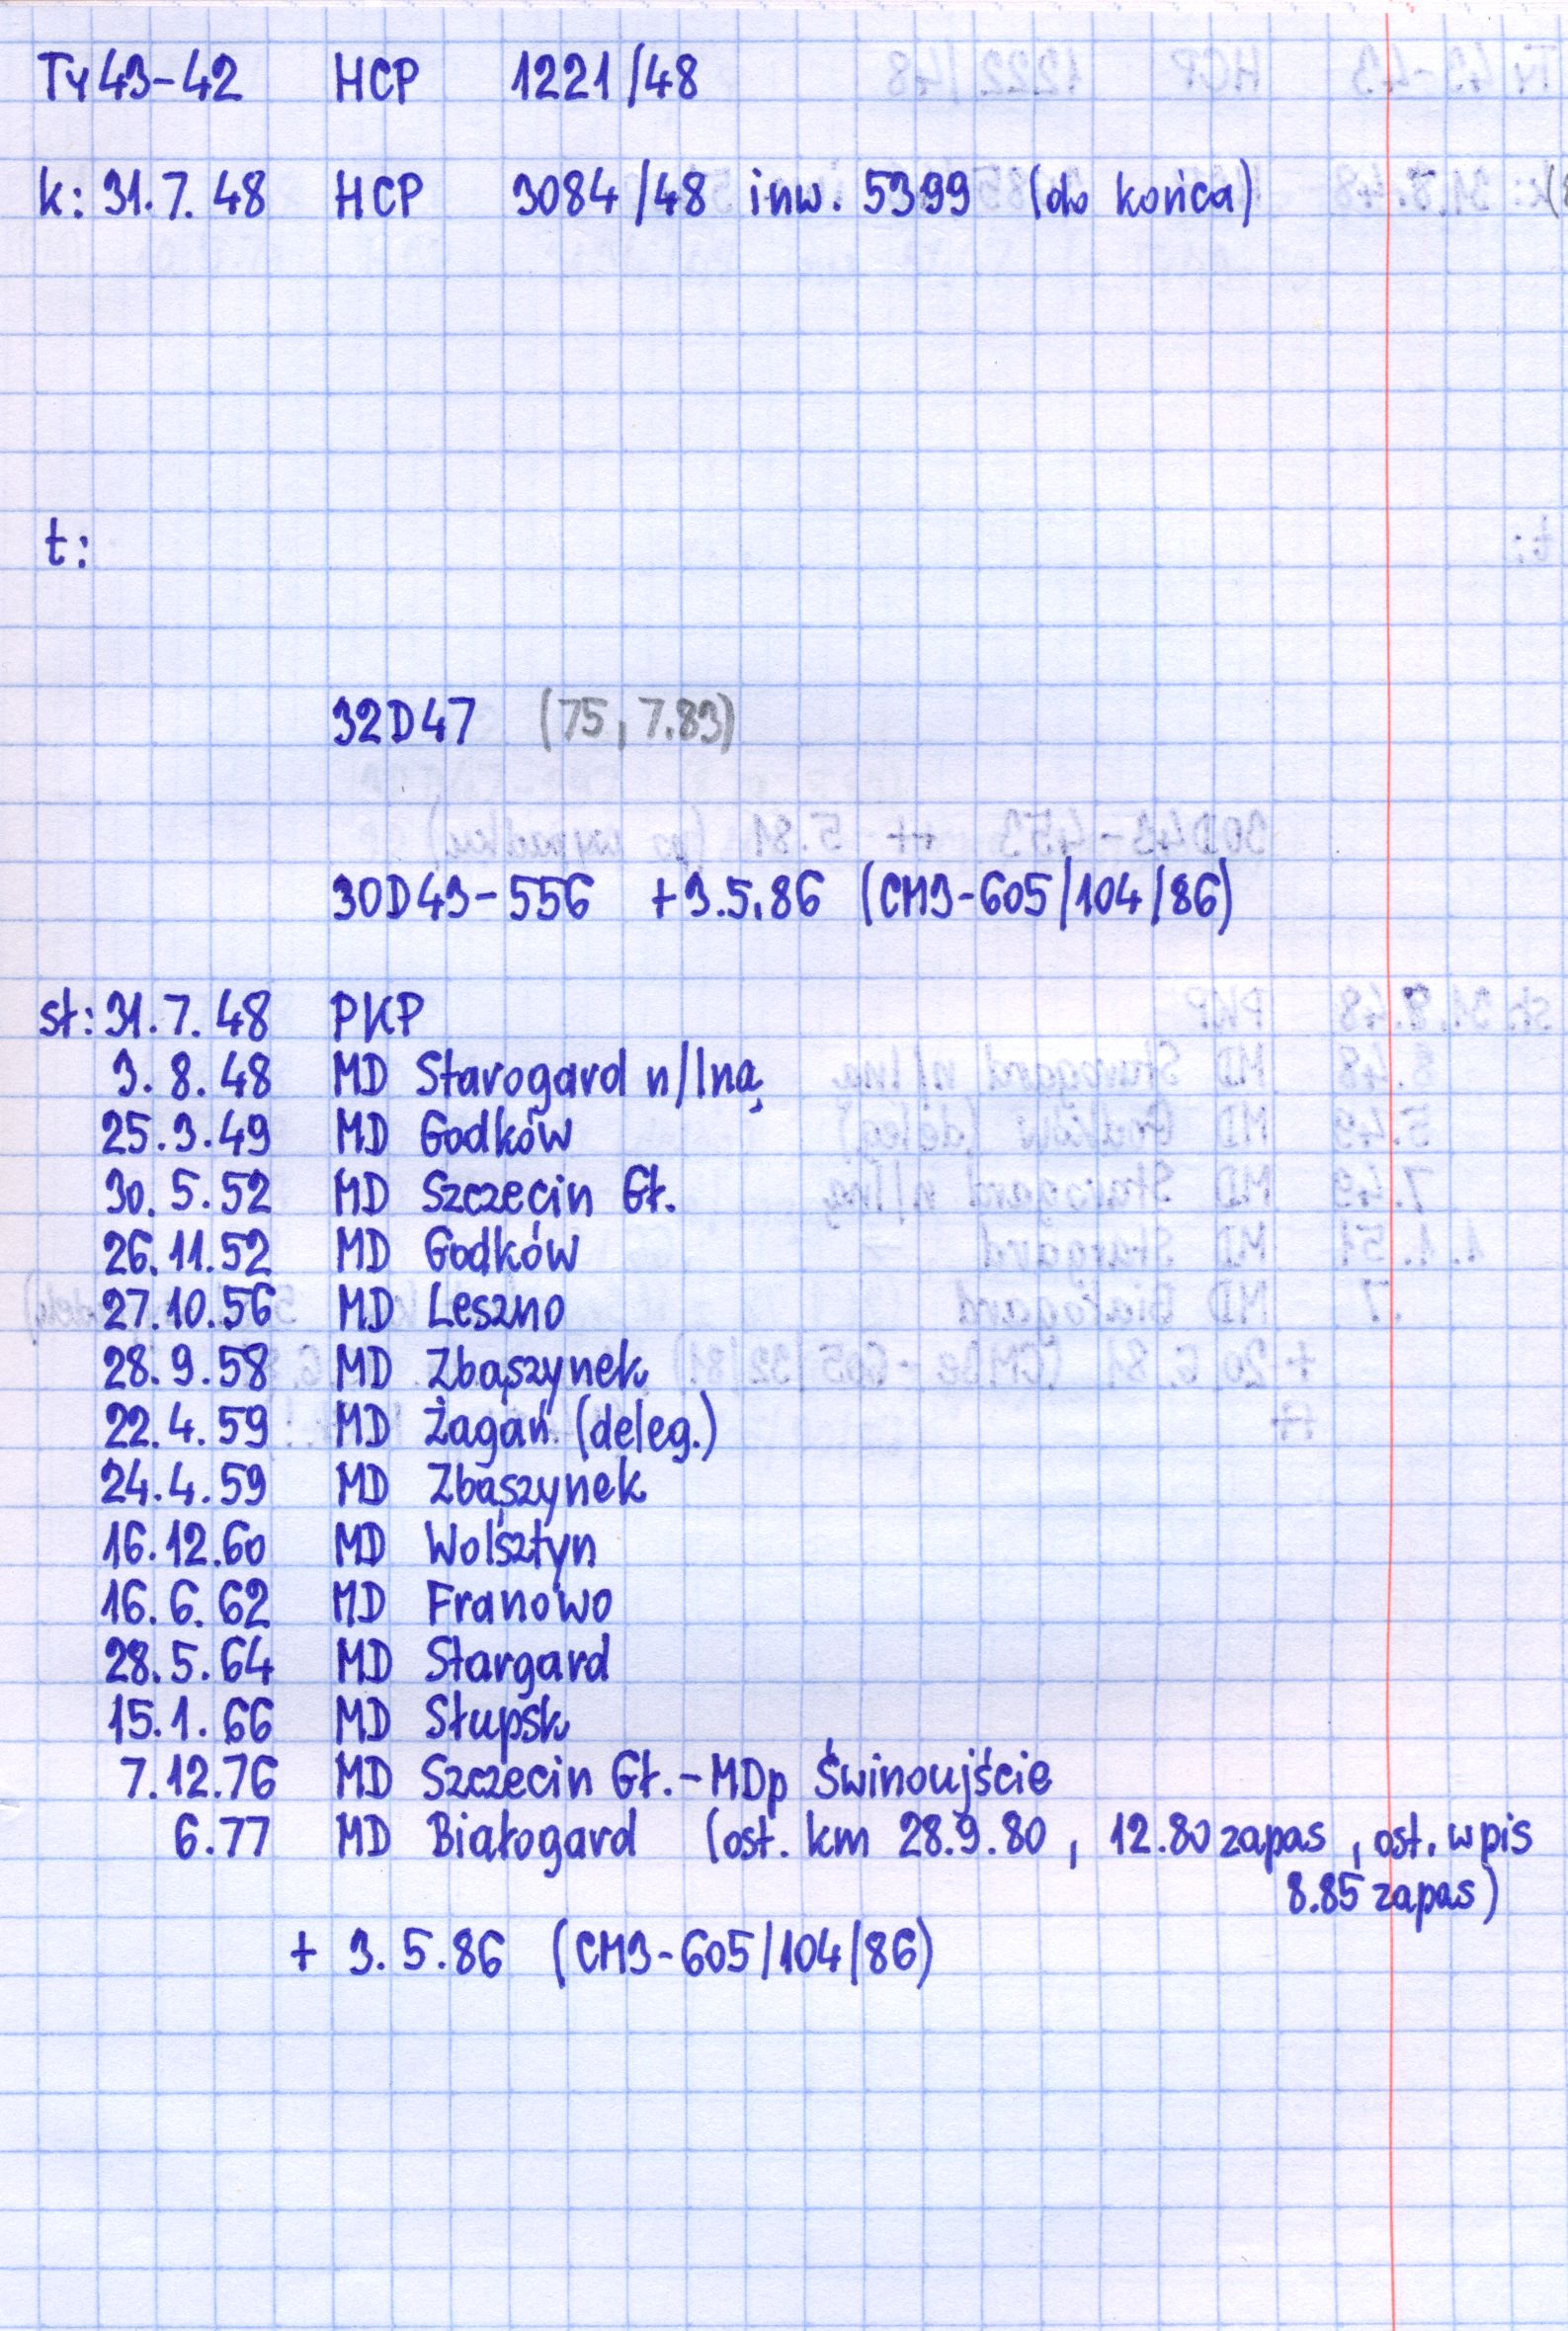 Ty43-42 HCP 1221/48
k: 31.7.48 HCP 3084/48 inw. 5399 (do końca)
t:
32D47 (75, 7.83)
30D43-556 +3.5.86 (CM3-605/104/86)
st: 31.7.48 PKP
3.8.48 MD Starogard n/Iną
25.3.49 MD Godków
30.5.52 MD Szczecin Gł.
26.11.52 MD Godków
27.10.56 MD Leszno
28.9.58 MD Zbąszynek
22.4.59 MD Żagań (deleg.)
24.4.59 MD Zbąszynek
16.12.60 MD Wolsztyn
16.6.62 MD Franowo
28.5.64 MD Stargard
15.1.66 MD Słupsk
7.12.76 MD Szczecin Gł.-MDp Świnoujście
6.77 MD Białogard (ost. km 28.9.80, 12.80 zapas, ost. wpis
8.85 zapas)
+ 3.5.86 (CM3-605/104/86)